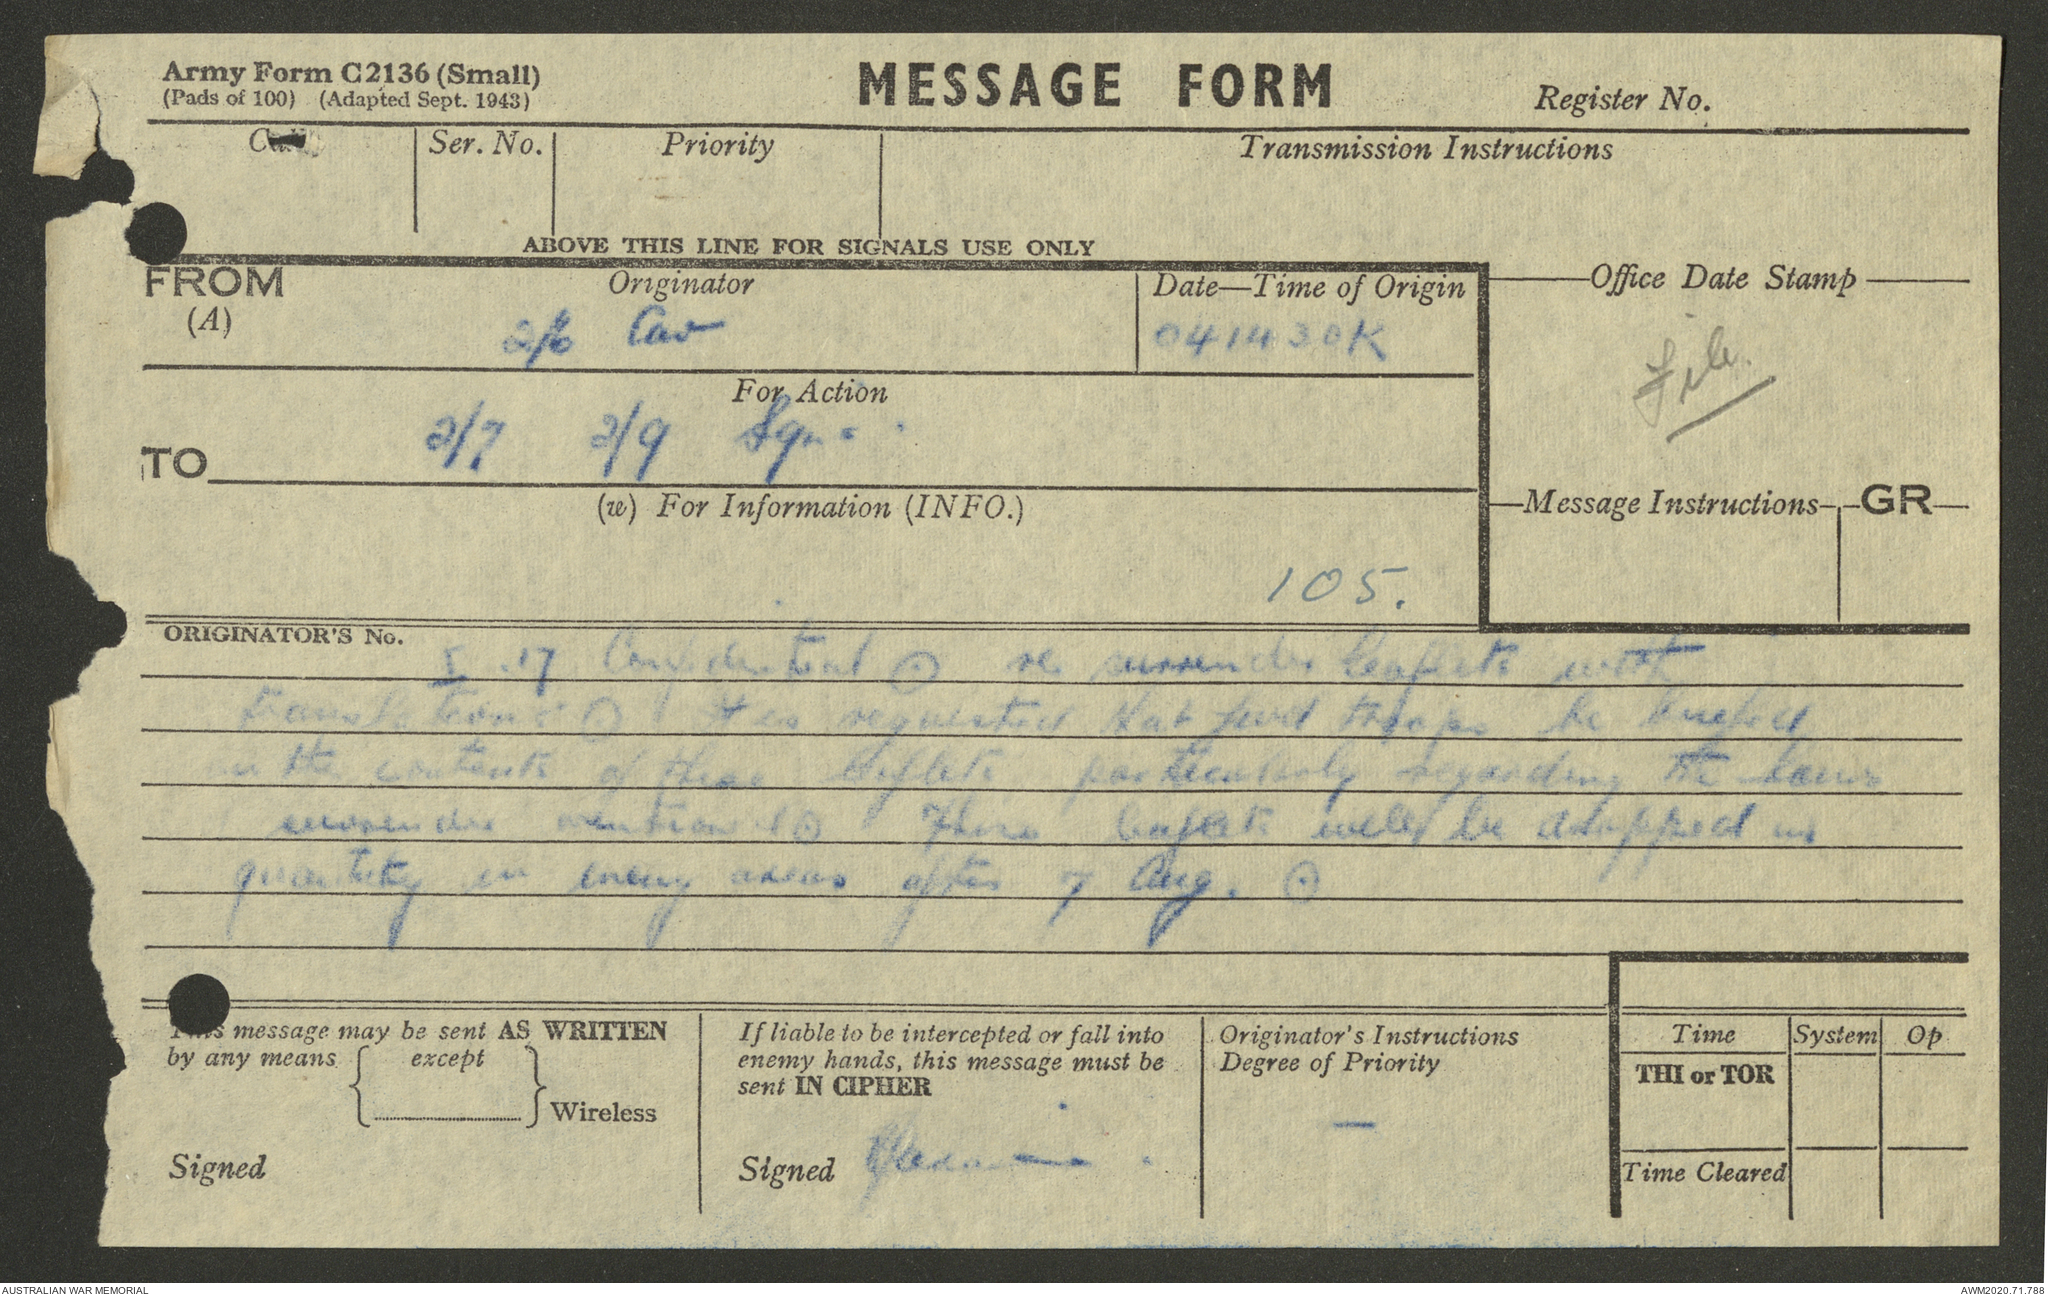 Army Form C2136 (Small)
(Pads of 100) (Adapted Sept. 1943)
MESSAGE FORM
Register No.
Ser. No.
Priority
Transmission Instructions
ABOVE THIS LINE FOR SIGNALS USE ONLY
FROM
(A)
Originator
2/6 Cav
Date—Time of Origin
041430K
Office Date Stamp
File.
For Action
TO
2/7 2/9 Sqn.
(w) For Information (INFO.)
Message Instructions
GR
105.
ORIGINATOR'S No.
I .17 Confidential ⊙ re surrender leaflets with
translations ⊙ It is requested that fwd troops be briefed
in the contents of these leaflets particularly regarding the
surrender mentioned ⊙ These leaflets will be dropped in
quantity in enemy areas after 7 Aug. ⊙
This message may be sent AS WRITTEN
by any means except
Wireless
Signed
If liable to be intercepted or fall into
enemy hands, this message must be
sent IN CIPHER
Signed
Originator's Instructions
Degree of Priority
—
Time
System
Op
THI or TOR
Time Cleared
AUSTRALIAN WAR MEMORIAL
AWM2020.71.788